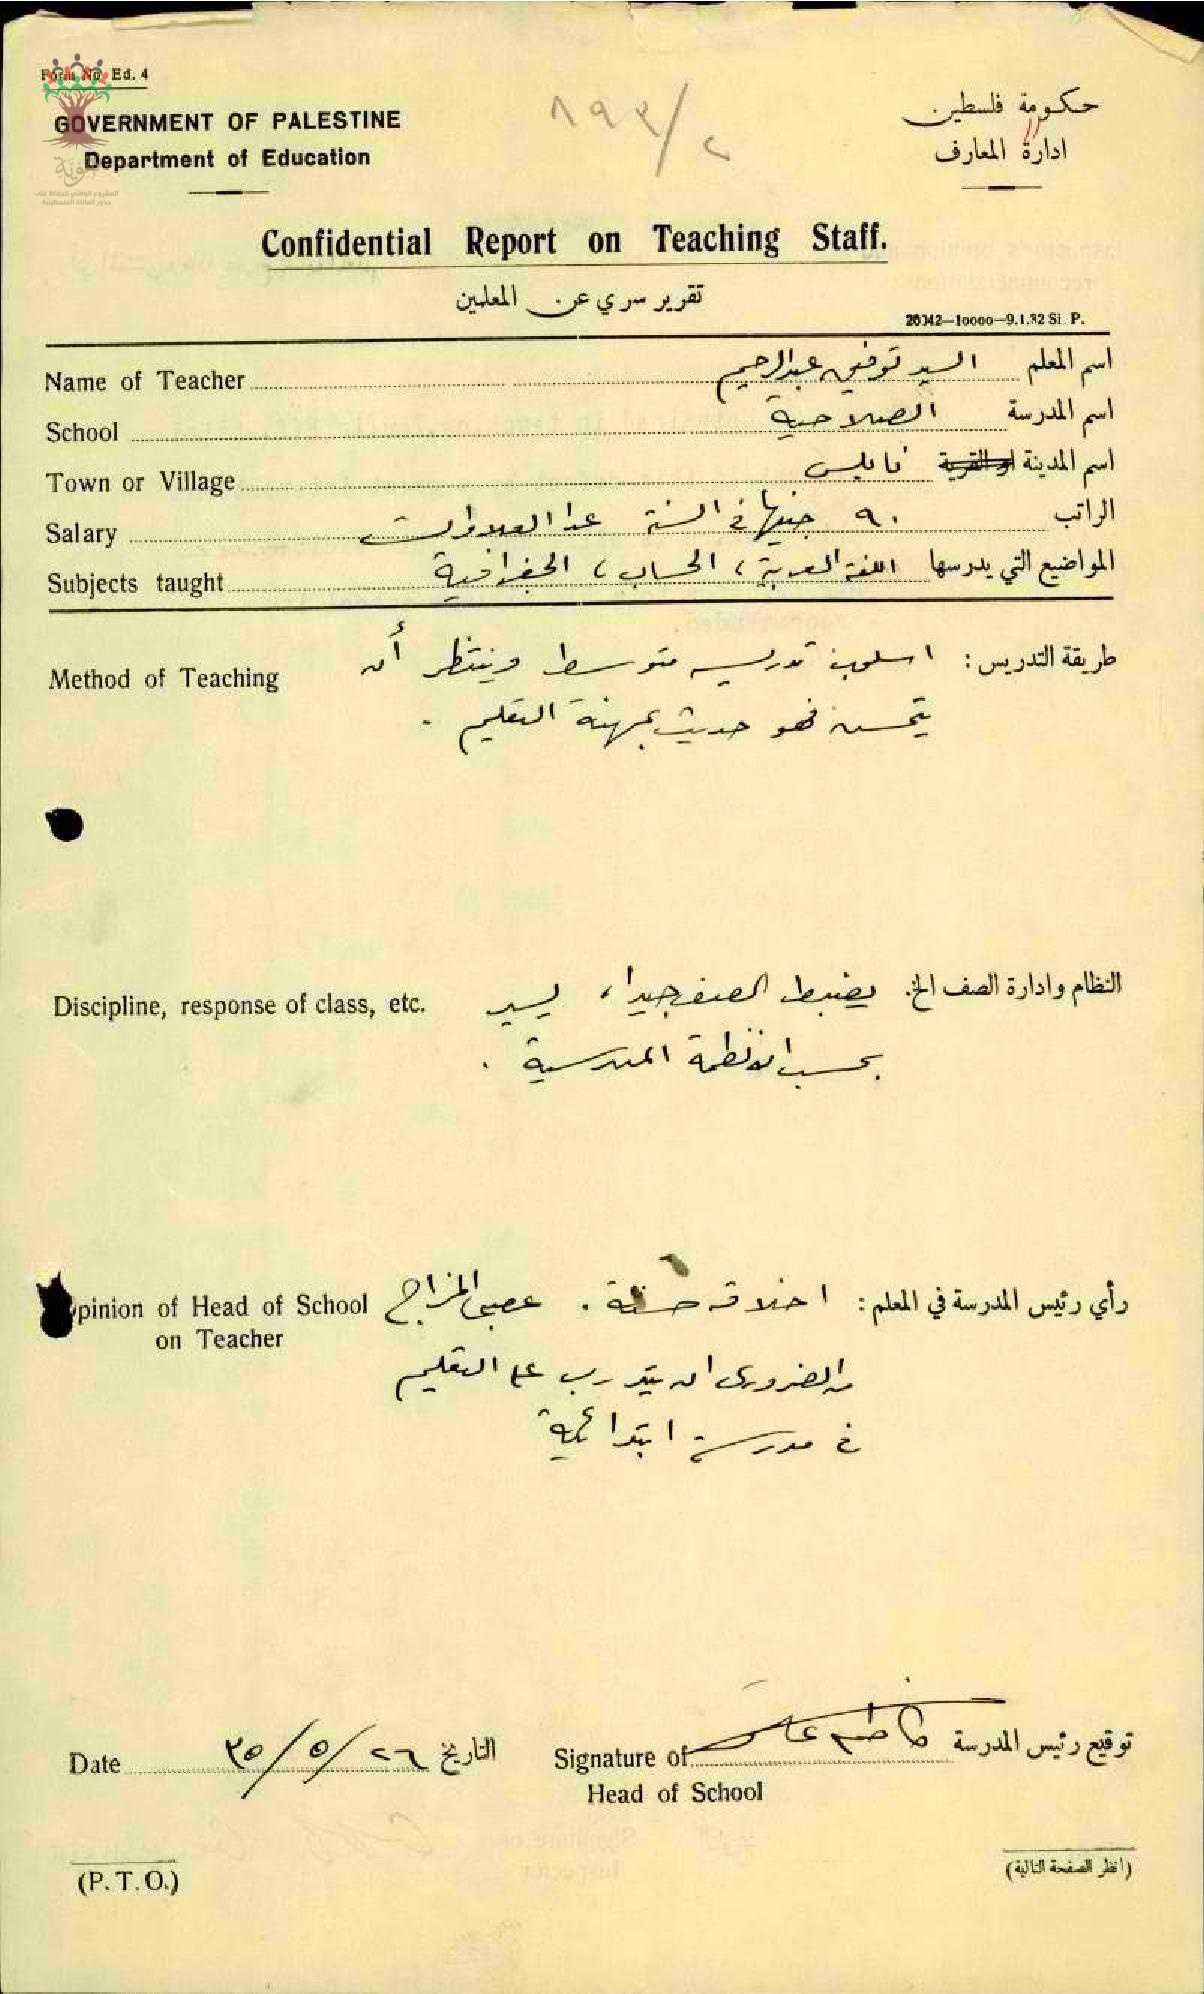 Form No. Ed. 4
GOVERNMENT OF PALESTINE
Department of Education
حكومة فلسطين
ادارة المعارف
٨٩٣/٢
Confidential Report on Teaching Staff.
تقرير سري عن المعلمين
20042—10000—9.1.32 Si. P.
Name of Teacher السيد توفيق عبدالرحيم اسم المعلم
School الصلاحية اسم المدرسة
Town or Village نابلس اسم المدينة او القرية
Salary ٩٠ جنيها في السنة عدا العلاوات الراتب
Subjects taught اللغة العربية، الحساب، الجغرافية المواضيع التي يدرسها
Method of Teaching طريقة التدريس: اسلوب تدريسه متوسط وينتظر أن
يتحسن فهو حديث بمهنة التعليم .
Discipline, response of class, etc. النظام وادارة الصف الخ. يضبط الصف جيدا، يسير
بحسب الانظمة المدرسية .
pinion of Head of School رأي رئيس المدرسة في المعلم: اخلاقه حسنة . عصبي المزاج
on Teacher
من الضروري ان يتدرب على التعليم
في مدرسة ابتدائية
Date ٢٦/٥/٣٥ التاريخ
Signature of توقيع رئيس المدرسة
Head of School
(P. T. O.)
(انظر الصفحة التالية)